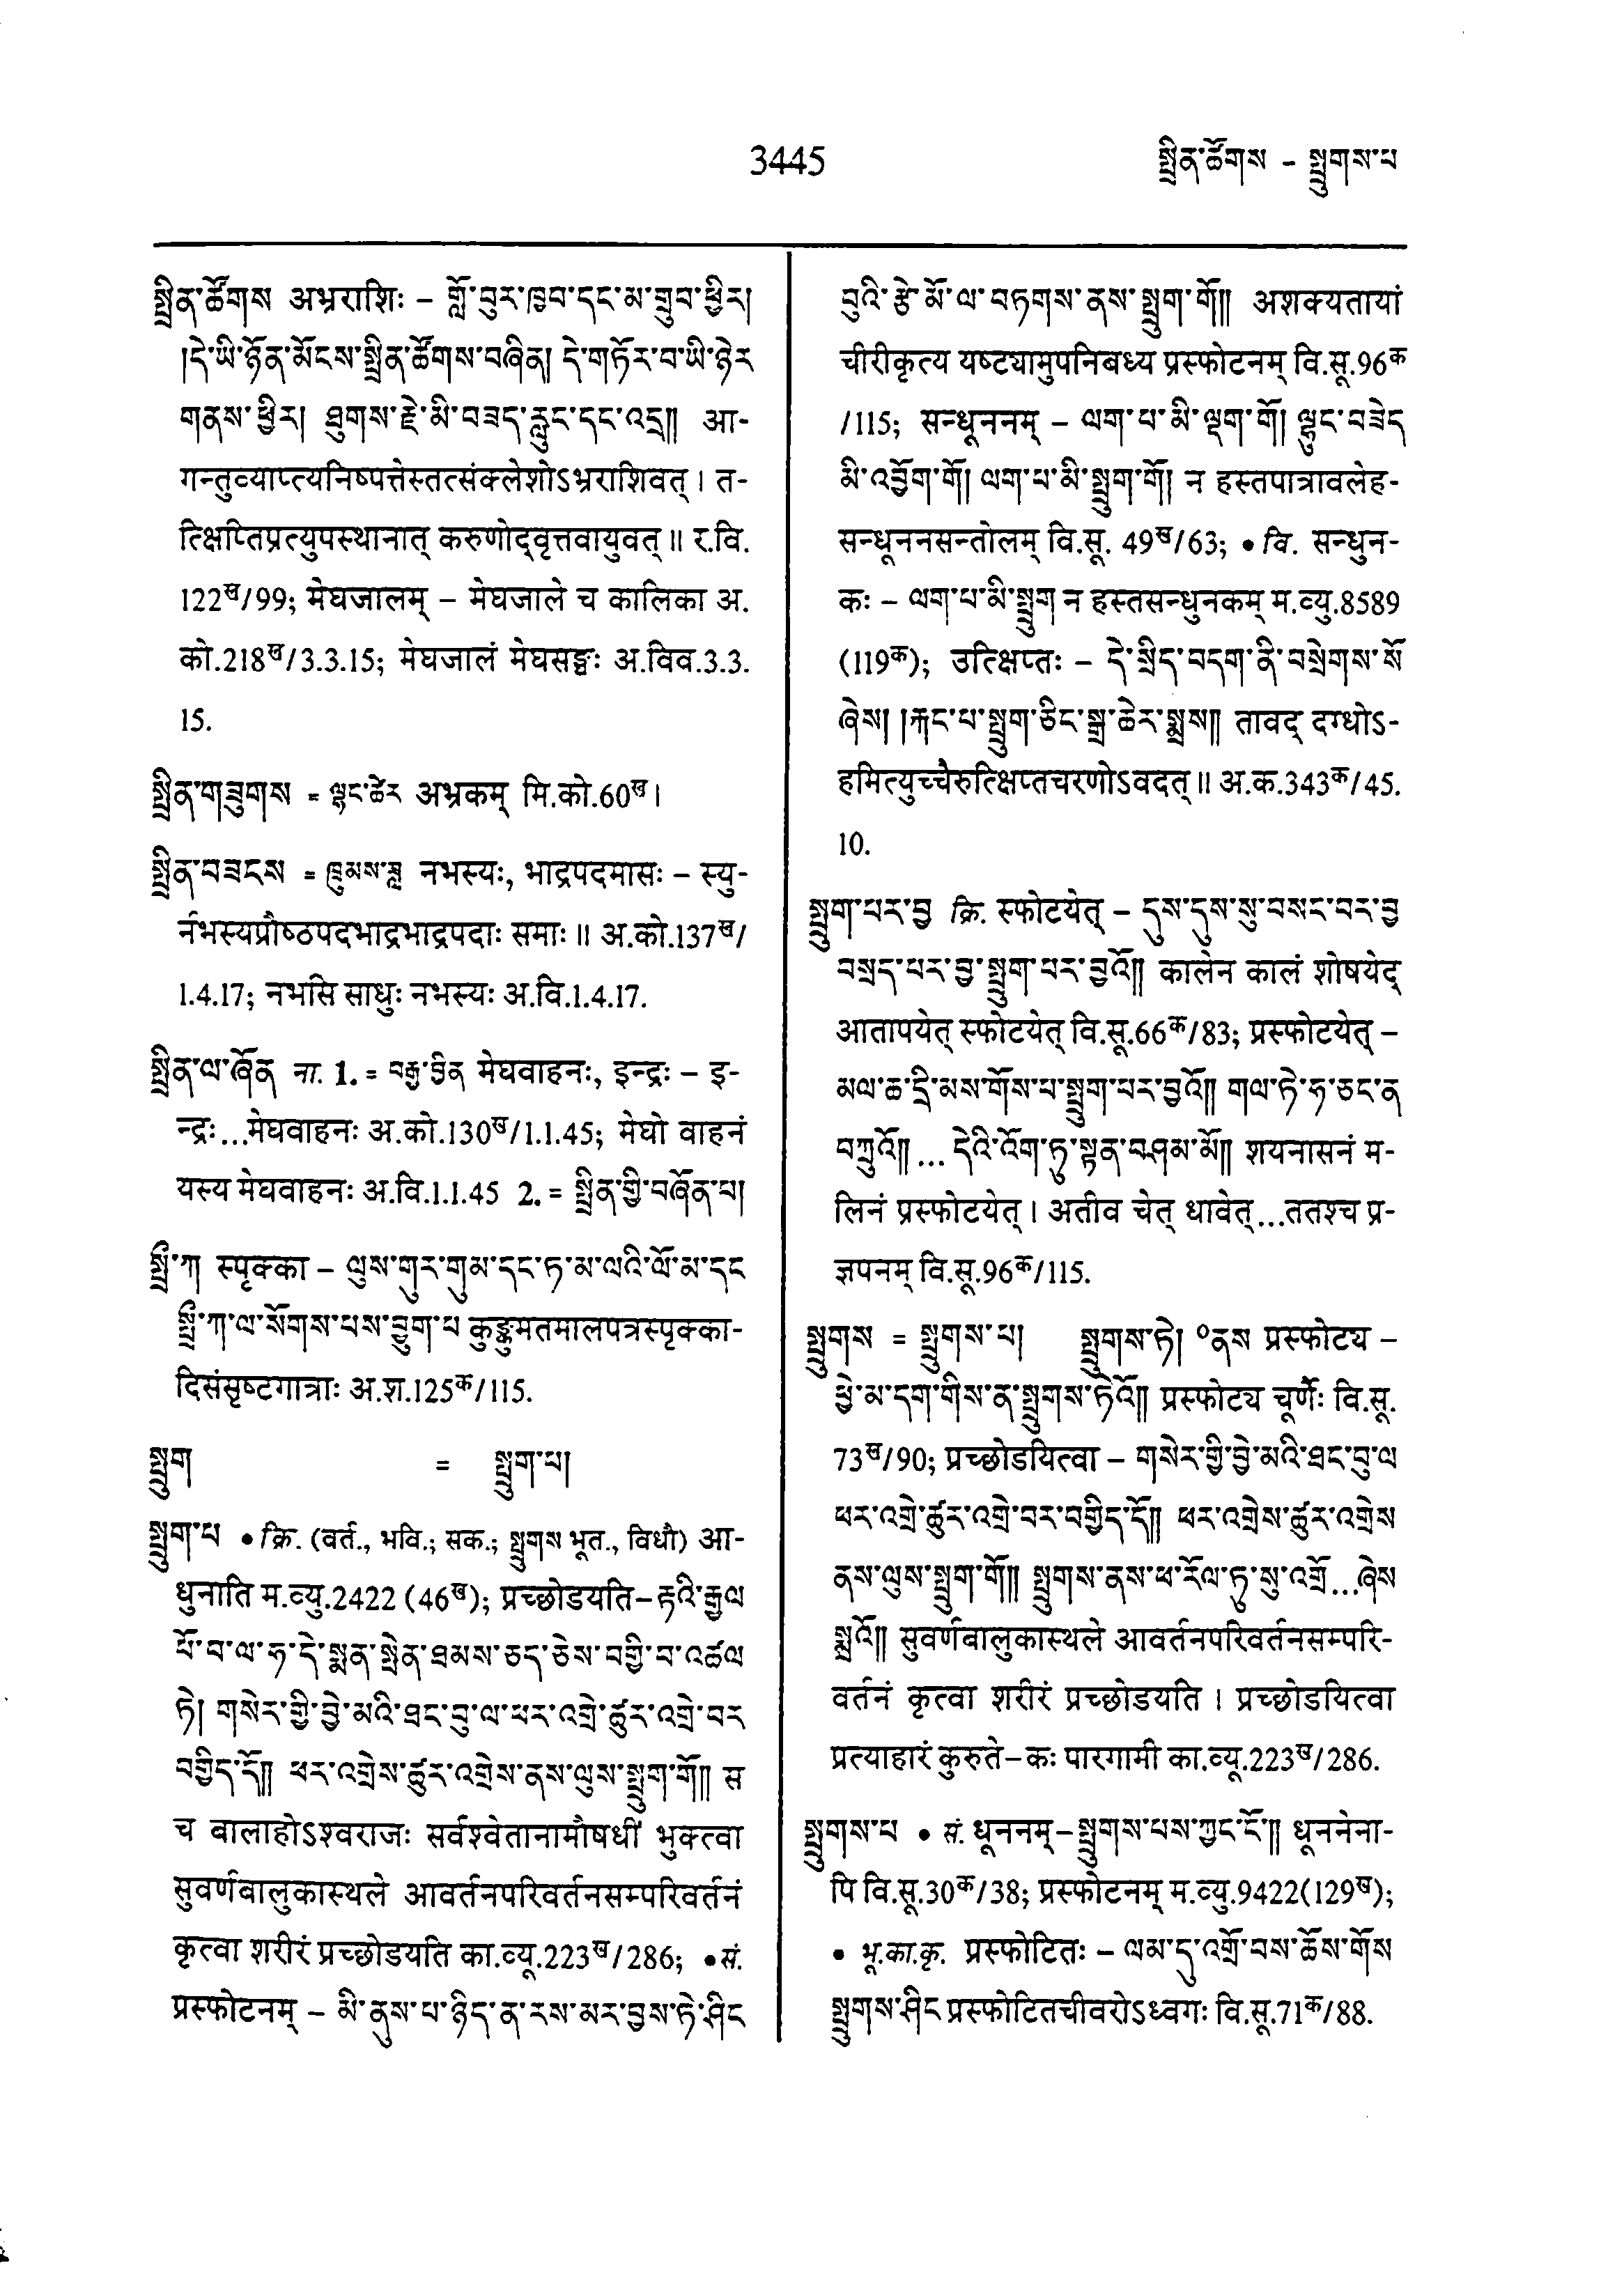 3445
སྤྲིན་ཚོགས – སྤྲུགས་པ
སྤྲིན་ཚོགས अभ्रराशिः – གློ་བུར་ཁྱབ་དང་མ་གྲུབ་ཕྱིར།
།དེ་ཡི་ཉོན་མོངས་སྤྲིན་ཚོགས་བཞིན། དེ་གཏོར་བ་ཡི་ཉེར
གནས་ཕྱིར། ཐུགས་རྗེ་མི་བཟད་རླུང་དང་འདྲ།། आ-
गन्तुव्याप्त्यनिष्पत्तेस्तत्संक्लेशोऽभ्रराशिवत् । त-
त्क्षिप्तिप्रत्युपस्थानात् करुणोद्वृत्तवायुवत् ॥ र.वि.
122ख/99; मेघजालम् – मेघजाले च कालिका अ.
को.218ख/3.3.15; मेघजालं मेघसङ्घः अ.विव.3.3.
15.
སྤྲིན་གཟུགས = ལྷང་ཚེར अभ्रकम् मि.को.60ख ।
སྤྲིན་བཟངས = ཁྲུམས་ཟླ नभस्यः, भाद्रपदमासः – स्यु-
र्नभस्यप्रौष्ठपदभाद्रभाद्रपदाः समाः ॥ अ.को.137ख/
1.4.17; नभसि साधुः नभस्यः अ.वि.1.4.17.
སྤྲིན་ལ་ཞོན ना. 1. = བརྒྱ་བྱིན मेघवाहनः, इन्द्रः – इ-
न्द्रः...मेघवाहनः अ.को.130ख/1.1.45; मेघो वाहनं
यस्य मेघवाहनः अ.वि.1.1.45 2. = སྤྲིན་གྱི་བཞོན་པ།
སྤྲི་ཀ स्पृक्का – ལུས་གུར་གུམ་དང་ཏ་མ་ལའི་ལོ་མ་དང
སྤྲི་ཀ་ལ་སོགས་པས་བྱུག་པ कुङ्कुमतमालपत्रस्पृक्का-
दिसंसृष्टगात्राः अ.श.125क/115.
སྤྲུག = སྤྲུག་པ།
སྤྲུག་པ • क्रि. (वर्त., भवि.; सक.; སྤྲུགས भूत., विधौ) आ-
धुनाति म.व्यु.2422 (46ख); प्रच्छोडयति–རྟའི་རྒྱལ
པོ་བ་ལ་ཧ་དེ་སྨན་སྤྲེན་ཐམས་ཅད་ཅེས་བགྱི་བ་འཚལ
ཏེ། གསེར་གྱི་བྱེ་མའི་ཐང་བུ་ལ་ཕར་འགྲེ་ཚུར་འགྲེ་བར
བགྱིད་དོ།། ཕར་འགྲེས་ཚུར་འགྲེས་ནས་ལུས་སྤྲུག་གོ།། स
च बालाहोऽश्वराजः सर्वश्वेतानामौषधीं भुक्त्वा
सुवर्णबालुकास्थले आवर्तनपरिवर्तनसम्परिवर्तनं
कृत्वा शरीरं प्रच्छोडयति का.व्यू.223ख/286; • सं.
प्रस्फोटनम् – མི་ནུས་པ་ཉིད་ན་རས་མར་བྱས་ཏེ་ཤིང
བུའི་རྩེ་མོ་ལ་བཏགས་ནས་སྤྲུག་གོ།། अशक्यतायां
चीरीकृत्य यष्ट्यामुपनिबध्य प्रस्फोटनम् वि.सू.96क
/115; सन्धूननम् – ལག་པ་མི་ལྡག་གོ། ལྷུང་བཟེད
མི་འབྱོག་གོ། ལག་པ་མི་སྤྲུག་གོ། न हस्तपात्रावलेह-
सन्धूननसन्तोलम् वि.सू. 49ख/63; • वि. सन्धुन-
कः – ལག་པ་མི་སྤྲུག न हस्तसन्धुनकम् म.व्यु.8589
(119क); उत्क्षिप्तः – དེ་སྲིད་བདག་ནི་བསྲེགས་སོ
ཞེས། །རྐང་པ་སྤྲུག་ཅིང་སྒྲ་ཆེར་སྨྲས།། तावद् दग्धोऽ-
हमित्युच्चैरुत्क्षिप्तचरणोऽवदत् ॥ अ.क.343क/45.
10.
སྤྲུག་པར་བྱ क्रि. स्फोटयेत् – དུས་དུས་སུ་བསང་བར་བྱ
བསྲད་པར་བྱ་སྤྲུག་པར་བྱའོ།། कालेन कालं शोषयेद्
आतापयेत् स्फोटयेत् वि.सू.66क/83; प्रस्फोटयेत् –
མལ་ཆ་དྲི་མས་གོས་པ་སྤྲུག་པར་བྱའོ།། གལ་ཏེ་ཧ་ཅང་ན
བཀྲུའོ།། ... དེའི་འོག་ཏུ་སྟན་བཤམ་མོ།། शयनासनं म-
लिनं प्रस्फोटयेत् । अतीव चेत् धावेत्...ततश्च प्र-
ज्ञपनम् वि.सू.96क/115.
སྤྲུགས = སྤྲུགས་པ། སྤྲུགས་ཏེ། ༠ནས प्रस्फोट्य –
ཕྱེ་མ་དག་གིས་ན་སྤྲུགས་ཏེའོ།། प्रस्फोट्य चूर्णैः वि.सू.
73ख/90; प्रच्छोडयित्वा – གསེར་གྱི་བྱེ་མའི་ཐང་བུ་ལ
ཕར་འགྲེ་ཚུར་འགྲེ་བར་བགྱིད་དོ།། ཕར་འགྲེས་ཚུར་འགྲེས
ནས་ལུས་སྤྲུག་གོ།། སྤྲུགས་ནས་ཕ་རོལ་ཏུ་སུ་འགྲོ...ཞེས
སྨྲའོ།། सुवर्णबालुकास्थले आवर्तनपरिवर्तनसम्परि-
वर्तनं कृत्वा शरीरं प्रच्छोडयति । प्रच्छोडयित्वा
प्रत्याहारं कुरुते–कः पारगामी का.व्यू.223ख/286.
སྤྲུགས་པ • सं. धूननम्–སྤྲུགས་པས་ཀྱང་ངོ་།། धूननेना-
पि वि.सू.30क/38; प्रस्फोटनम् म.व्यु.9422(129ख);
• भू.का.कृ. प्रस्फोटितः – ལམ་དུ་འགྲོ་བས་ཆོས་གོས
སྤྲུགས་ཤིང प्रस्फोटितचीवरोऽध्वगः वि.सू.71क/88.